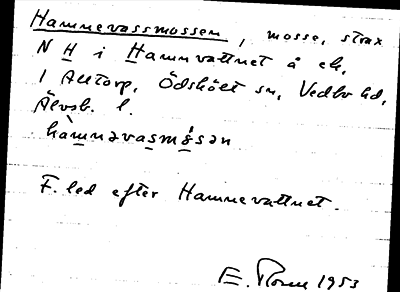 Hamnevassmossen, mosse, strax
N H i Hamnvattnet å ek,
1 Alltorp, Ödskölt sn, Vedbo hd,
Älvsb. l.
hàmnəvasmåsən
F. led efter Hamnevattnet.
E. 1953